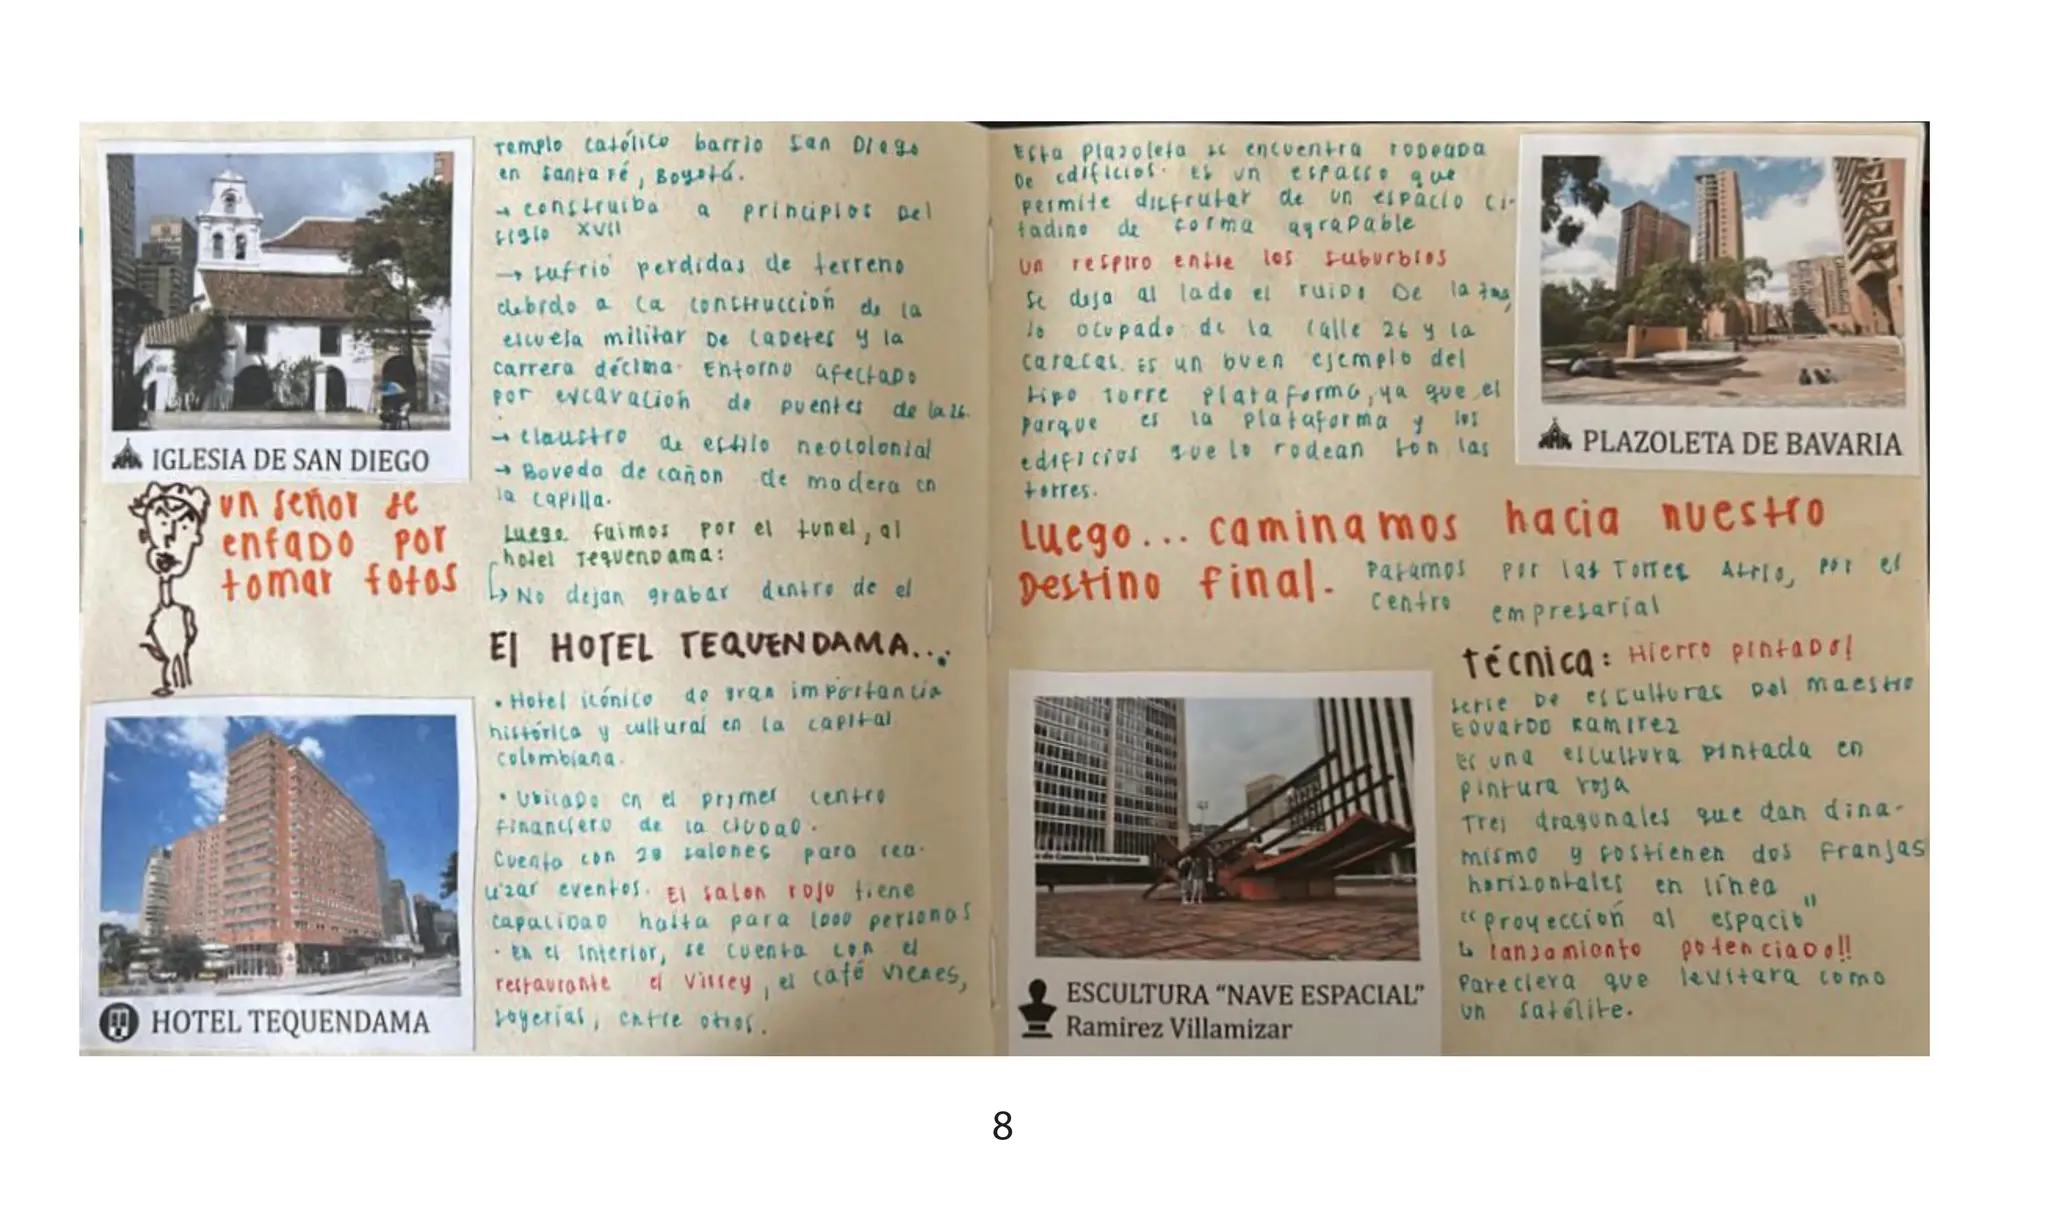 Templo católico barrio San Diego
en Santa Fé, Bogotá.
→ construiba a principios del
siglo XVII
→ sufrió perdidas de terreno
debido a la construcción de la
escuela militar de cadetes y la
carrera décima. Entorno afectado
por excavación de puentes de la 26.
→ claustro de estilo neocolonial
→ Boveda de cañon de madera en
la capilla.
IGLESIA DE SAN DIEGO
un señor se
enfado por
tomar fotos
Luego fuimos por el tunel, al
hotel Tequendama:
↳ No dejan grabar dentro de el
El HOTEL TEQUENDAMA...
• Hotel icónico de gran importancia
histórica y cultural en la capital
colombiana.
• Ubicado en el primer centro
financiero de la ciudad.
Cuenta con 28 salones para rea-
lizar eventos. El salon rojo tiene
capacidad hasta para 1000 personas
• En el interior, se cuenta con el
restaurante el Virrey, el café vienes,
joyerias, entre otros.
HOTEL TEQUENDAMA
Esta plazoleta se encuentra rodeada
de edificios. Es un espacio que
permite disfrutar de un espacio ci-
tadino de forma agradable
un respiro entre los suburbios
Se deja al lado el ruido de la
lo ocupado de la calle 26 y la
caracas. Es un buen ejemplo del
tipo torre plataforma, ya que el
parque es la plataforma y los
edificios que lo rodean son las
torres.
PLAZOLETA DE BAVARIA
Luego... caminamos hacia nuestro
Destino final.
Pasamos por las Torres Atrio, por el
centro empresarial
Técnica: Hierro pintado!
serie de esculturas del maestro
Eduardo Ramirez
Es una escultura pintada en
pintura roja
Tres diagunales que dan dina-
mismo y sostienen dos franjas
horizontales en línea
"proyección al espacio"
↳ lanzamiento potenciado!!
Pareciera que levitara como
un satélite.
ESCULTURA "NAVE ESPACIAL"
Ramirez Villamizar
8